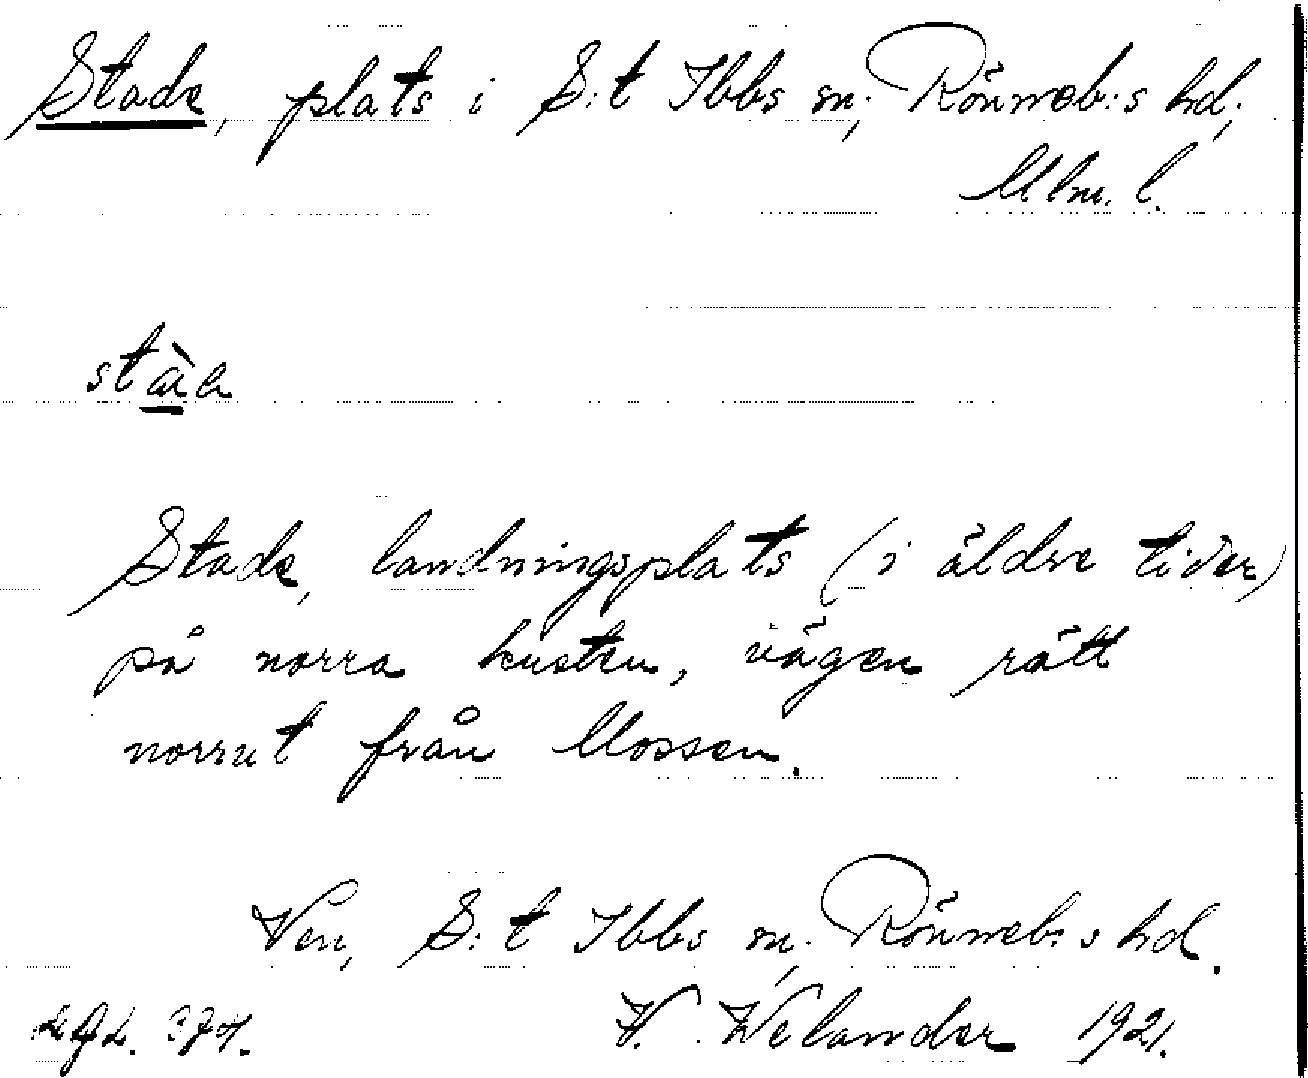 Stade, plats i S:t Ibbs sn, Rönneb:s hd,
Mlm. l.
stàa
Stade, landningsplats (i äldre tider)
på norra kusten, vägen rätt
norrut från Mossen.
Ven, S:t Ibbs sn, Rönneb:s hd.
W. Welander 1921.